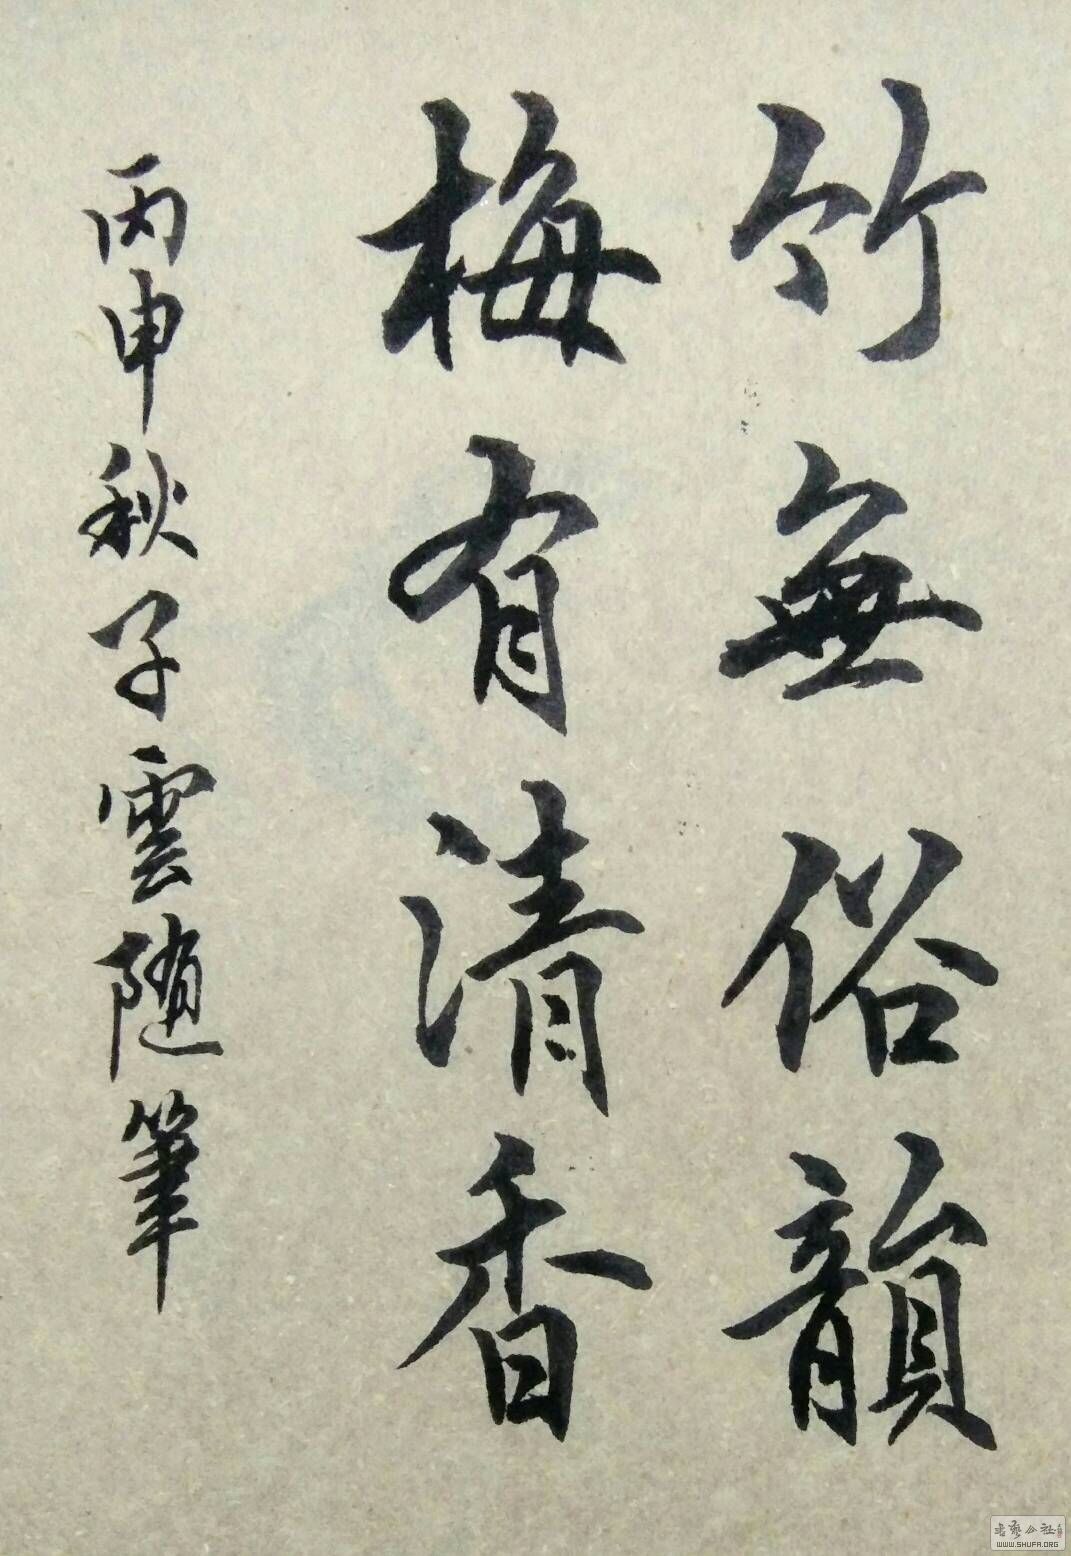 竹無俗韻
梅有清香
丙申秋子雲随筆
书艺公社
WWW.SHUFA.ORG